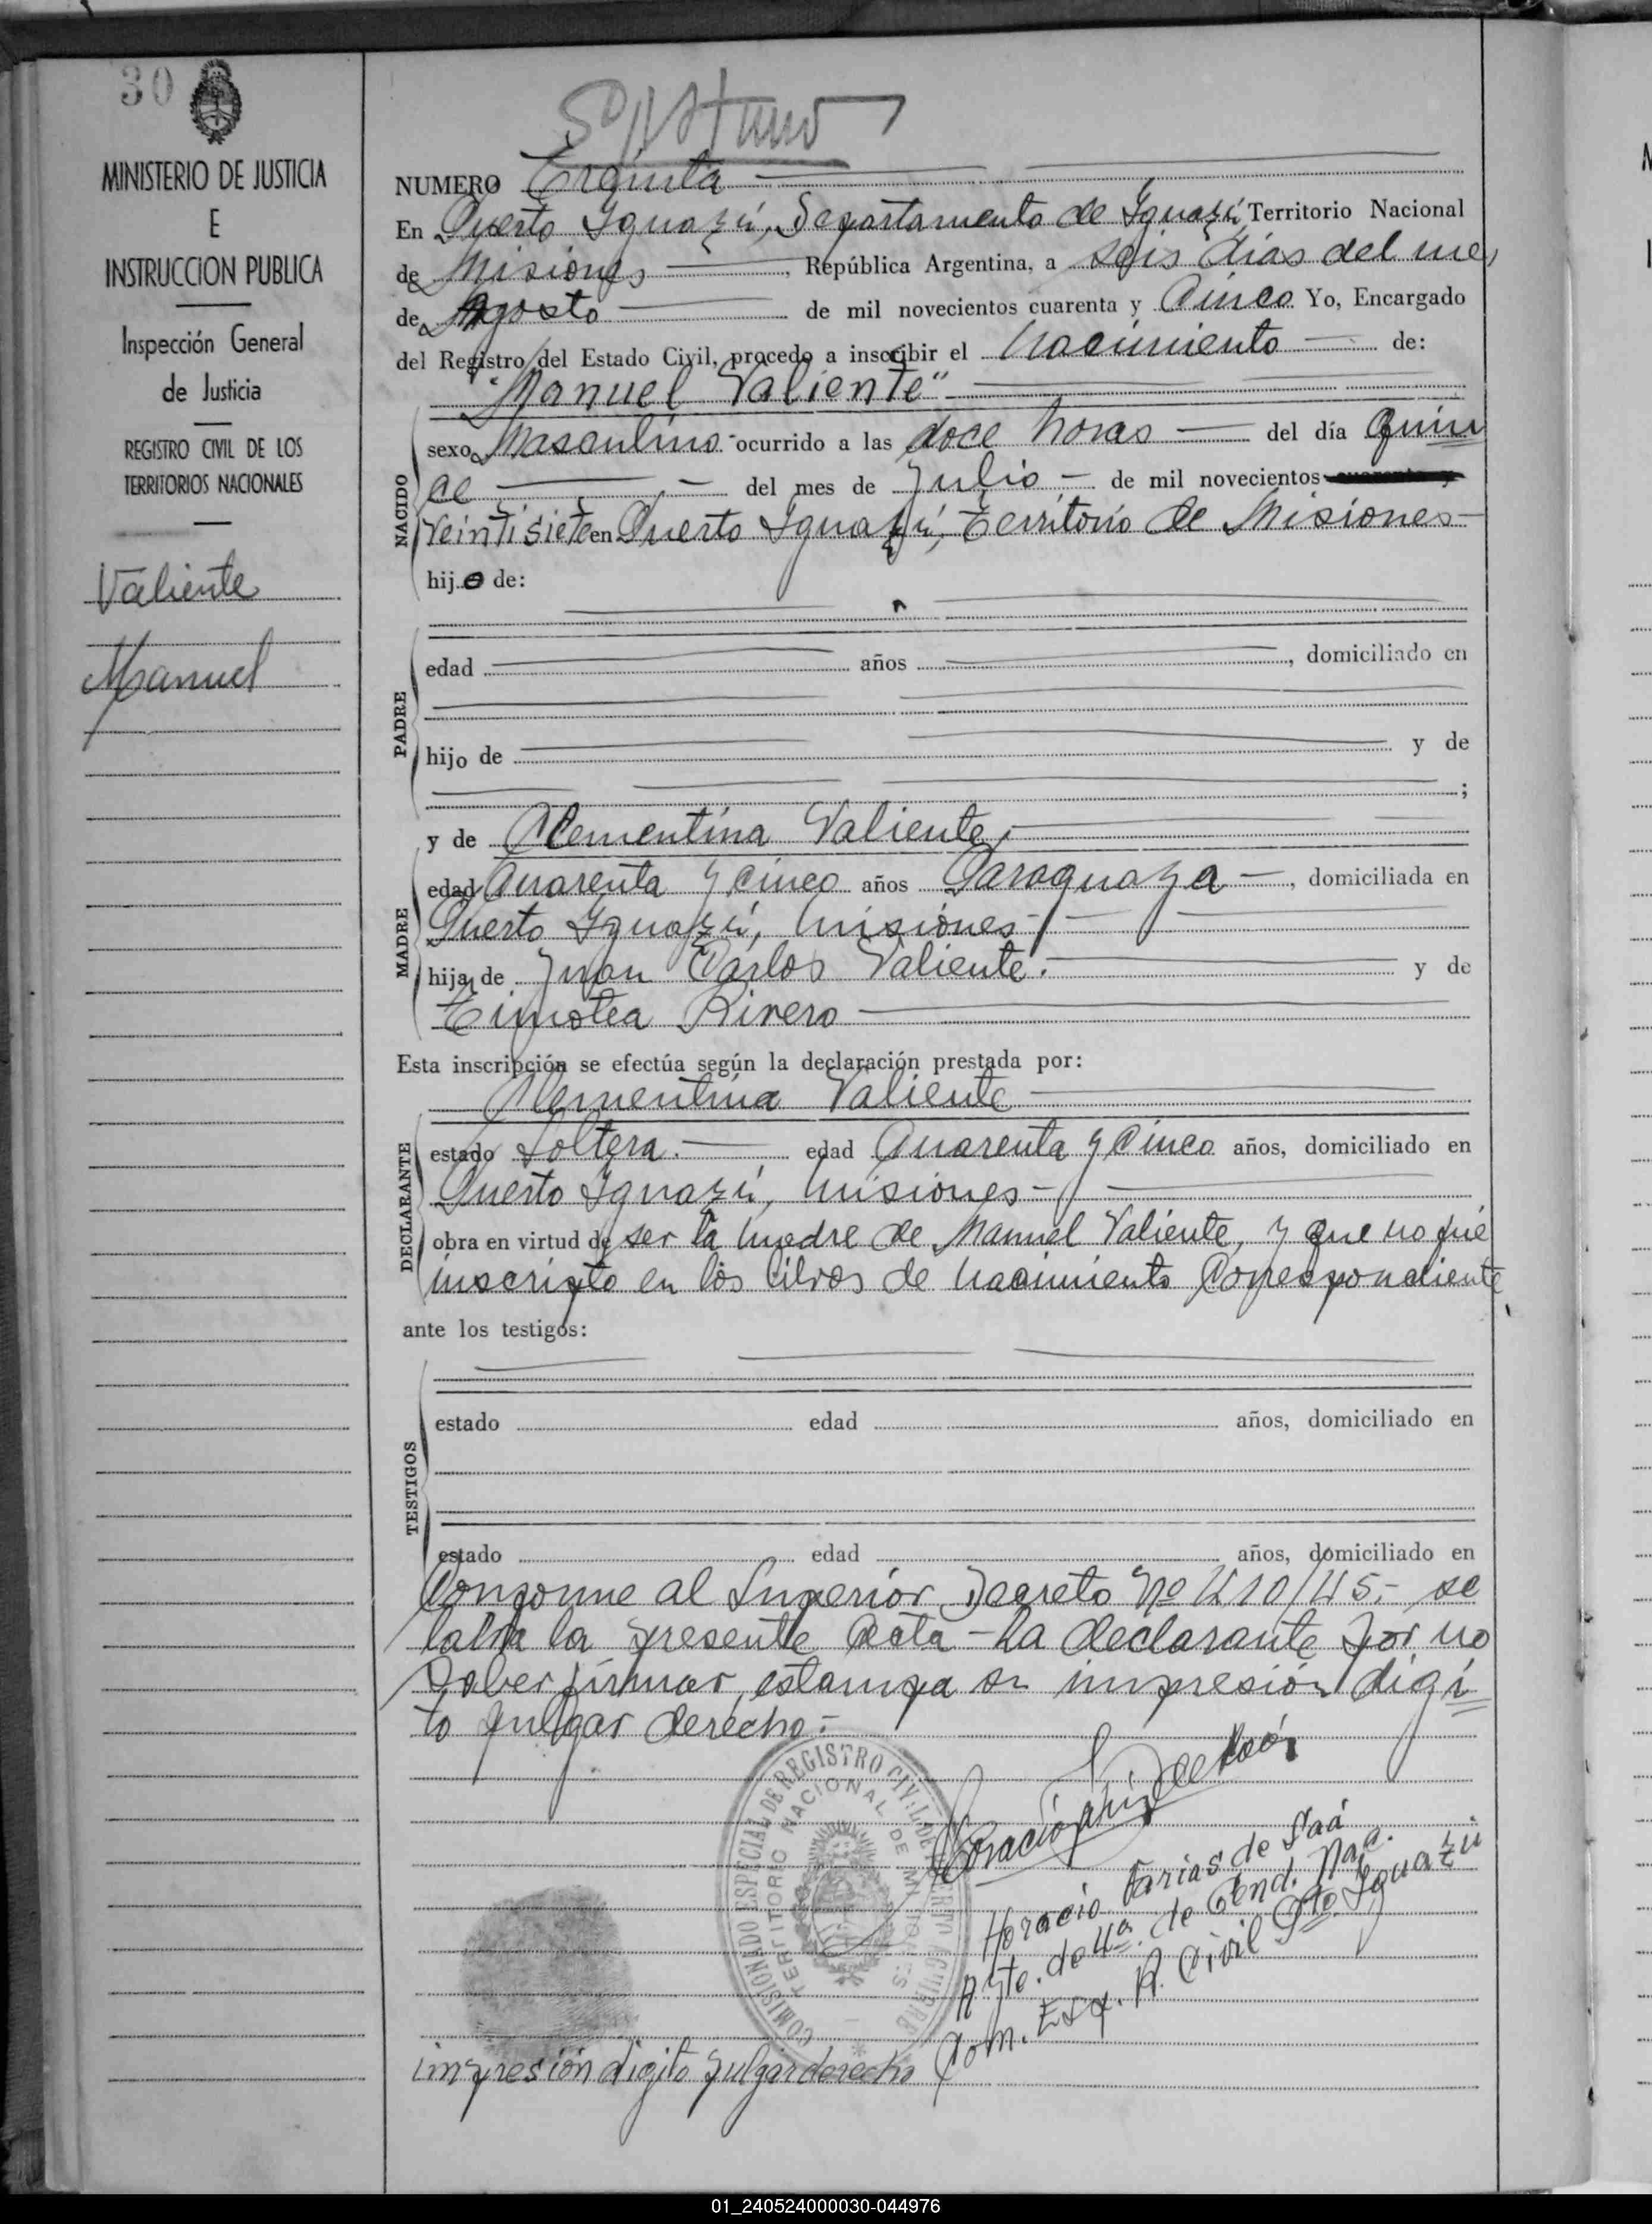 30
MINISTERIO DE JUSTICIA
E
INSTRUCCION PUBLICA
Inspección General
de Justicia
REGISTRO CIVIL DE LOS
TERRITORIOS NACIONALES
Valiente
Manuel
NUMERO Treinta
En Puerto Iguazú, Departamento de Iguazú, Territorio Nacional
de Misiones, República Argentina, a seis días del mes
de Agosto de mil novecientos cuarenta y Cinco Yo, Encargado
del Registro del Estado Civil, procedo a inscribir el Nacimiento de:
"Manuel Valiente"
NACIDO
sexo Masculino ocurrido a las doce horas del día Quin
ce del mes de Julio de mil novecientos
Veintisiete en Puerto Iguazú, Territorio de Misiones
hijo de:
PADRE
edad años , domiciliado en
hijo de y de
;
MADRE
y de Clementina Valiente,
edad Cuarenta y cinco años Paraguaya , domiciliada en
Puerto Iguazú, Misiones
hija de Juan Carlos Valiente. y de
Timotea Rivero
Esta inscripción se efectúa según la declaración prestada por:
DECLARANTE
Clementina Valiente
estado Soltera. edad Cuarenta y Cinco años, domiciliado en
Puerto Iguazú, Misiones
obra en virtud de ser la madre de Manuel Valiente, y que no fué
inscripto en los libros de nacimiento Correspondiente
ante los testigos:
TESTIGOS
estado edad años, domiciliado en
estado edad años, domiciliado en
Conforme al Superior Decreto Nº 410/45.- se
labra la presente Acta - La declarante por no
saber firmar, estampa su impresión dígi
to pulgar derecho.-
COMISIONADO ESPECIAL DE REGISTRO CIVIL DE PUERTO AGUIRRE
TERRITORIO NACIONAL DE MISIONES
Horacio Farias de Saá
Ayte. de 4ª. de Gend. Nac.
Com. Esp. R. Civil Pto. Iguazú
impresión digito pulgar derecho
01_240524000030-044976